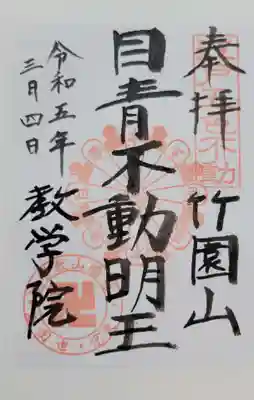 奉拝
竹園山
目青不動明王
令和五年
三月四日
教学院